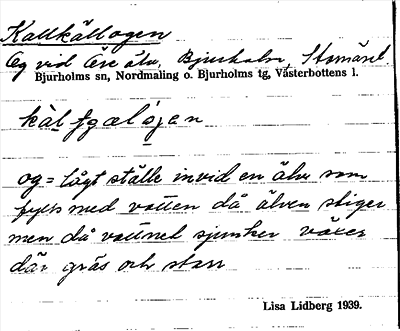 Kallkällogen
Og vid Öre älv, Bjurholm, Stornäset
Bjurholms sn, Nordmaling o. Bjurholms tg, Västerbottens l.
og = lågt ställe invid en älv som
fylls med vatten då älven stiger
men då vattnet sjunker växer
där gräs och starr
Lisa Lidberg 1939.